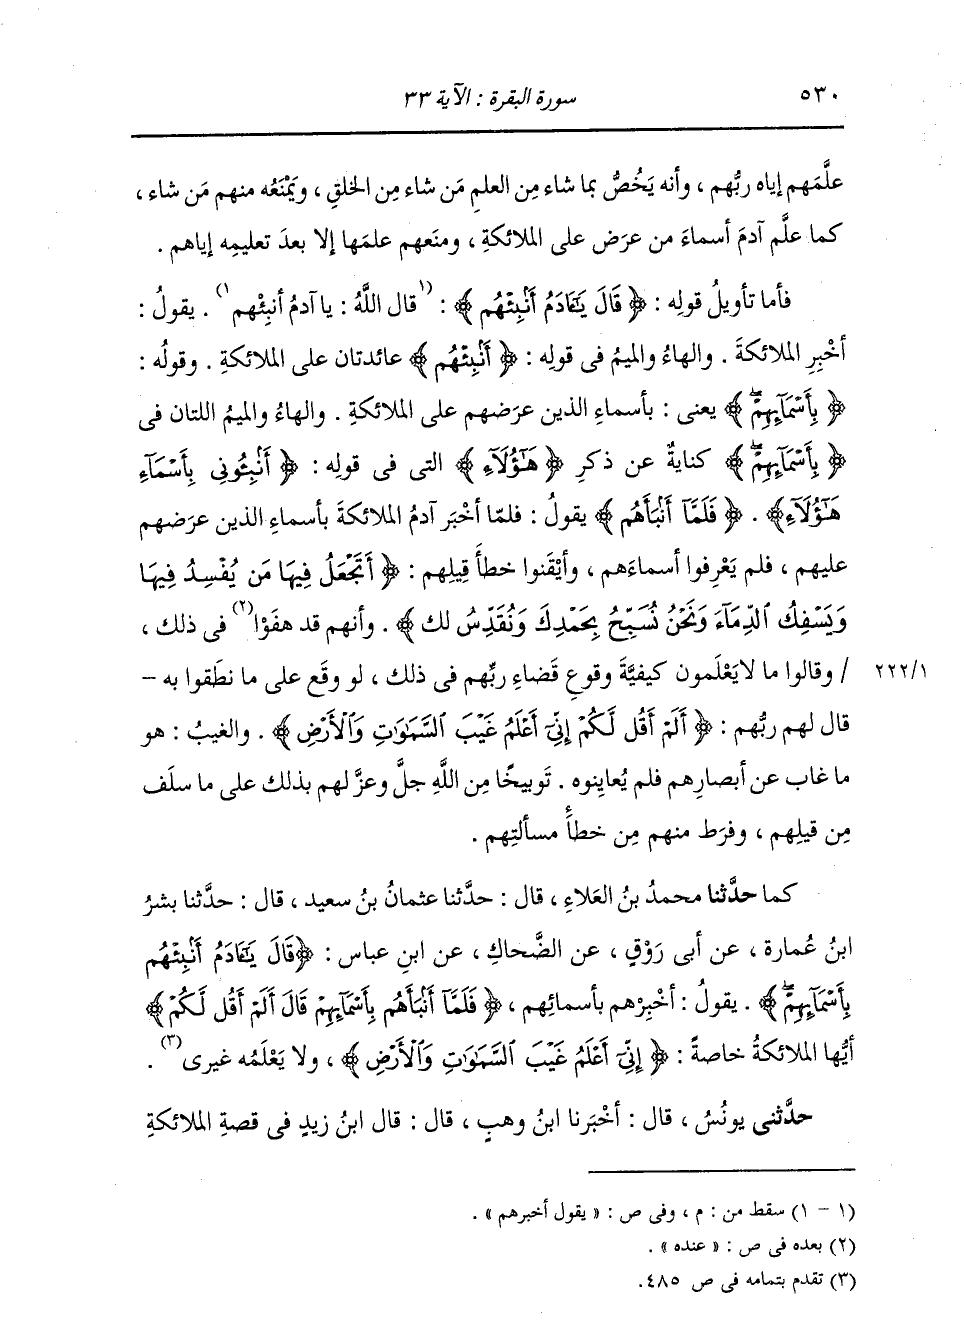 ٥٣٠
سورة البقرة : الآية ٣٣
علَّمَهم إياه ربُّهم ، وأنه يَخُصُّ بما شاء مِن العلمِ مَن شاء مِن الخلقِ ، ويَمْنَعُه منهم مَن شاء ،
كما علَّم آدمَ أسماءَ من عرَض على الملائكةِ ، ومنَعهم علمَها إلا بعدَ تعليمِه إياهم .
فأما تأويلُ قولِه : ﴿ قَالَ يَٰٓـَٔادَمُ أَنۢبِئْهُم ﴾ : (١قال اللَّهُ : يا آدمُ أنبِئْهم١) . يقولُ :
أخْبِرِ الملائكةَ . والهاءُ والميمُ فى قولِه : ﴿ أَنۢبِئْهُم ﴾ عائدتان على الملائكةِ . وقولُه :
﴿ بِأَسْمَآئِهِمْۖ ﴾ يعنى : بأسماءِ الذين عرَضهم على الملائكةِ . والهاءُ والميمُ اللتان فى
﴿ بِأَسْمَآئِهِمْۖ ﴾ كنايةٌ عن ذكرِ ﴿ هَٰٓؤُلَآءِ ﴾ التى فى قولِه : ﴿ أَنۢبِـُٔونِى بِأَسْمَآءِ
هَٰٓؤُلَآءِ﴾ . ﴿ فَلَمَّآ أَنۢبَأَهُم ﴾ يقولُ : فلمّا أخْبَر آدمُ الملائكةَ بأسماءِ الذين عرَضهم
عليهم ، فلم يَعْرِفوا أسماءَهم ، وأيْقَنوا خطأَ قِيلِهم : ﴿ أَتَجْعَلُ فِيهَا مَن يُفْسِدُ فِيهَا
وَيَسْفِكُ ٱلدِّمَآءَ وَنَحْنُ نُسَبِّحُ بِحَمْدِكَ وَنُقَدِّسُ لك ﴾ . وأنهم قد هفَوْا(٢) فى ذلك ،
٢٢٢/١ / وقالوا ما لا يَعْلَمون كيفيَّةَ وقوعِ قضاءِ ربِّهم فى ذلك ، لو وقَع على ما نطَقوا به –
قال لهم ربُّهم : ﴿ أَلَمْ أَقُل لَّكُمْ إِنِّىٓ أَعْلَمُ غَيْبَ ٱلسَّمَٰوَٰتِ وَٱلْأَرْضِ ﴾ . والغيبُ : هو
ما غاب عن أبصارِهم فلم يُعاينوه . تَوبيخًا مِن اللَّهِ جلَّ وعزَّ لهم بذلك على ما سلَف
مِن قيلِهم ، وفرَط منهم مِن خطأِ مسألتِهم .
كما حدَّثنا محمدُ بنُ العَلاءِ ، قال : حدَّثنا عثمانُ بنُ سعيد ، قال : حدَّثنا بشرُ
ابنُ عُمارة ، عن أبى رَوْقٍ ، عن الضَّحاكِ ، عن ابنِ عباس : ﴿قَالَ يَٰٓـَٔادَمُ أَنۢبِئْهُم
بِأَسْمَآئِهِمْۖ ﴾ . يقولُ : أخبِرْهم بأسمائِهم ، ﴿ فَلَمَّآ أَنۢبَأَهُم بِأَسْمَآئِهِمْ قَالَ أَلَمْ أَقُل لَّكُمْ ﴾
أيُّها الملائكةُ خاصةً : ﴿ إِنِّىٓ أَعْلَمُ غَيْبَ ٱلسَّمَٰوَٰتِ وَٱلْأَرْضِ ﴾ ، ولا يَعْلَمُه غيرى(٣) .
حدَّثنى يونُسُ ، قال : أخْبَرنا ابنُ وهبٍ ، قال : قال ابنُ زيدٍ فى قصةِ الملائكةِ
(١ – ١) سقط من : م ، وفى ص : « يقول أخبرهم » .
(٢) بعده فى ص : « عنده » .
(٣) تقدم بتمامه فى ص ٤٨٥.